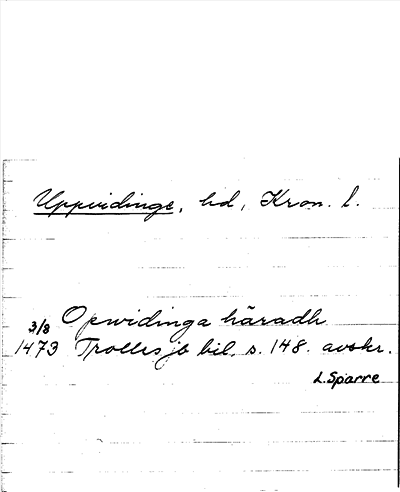 Uppvidinge, hd, Kron. l.
Opwidinga häradh
3/8
1473 Trolles jb bil. s. 148. avskr.
L. Sparre